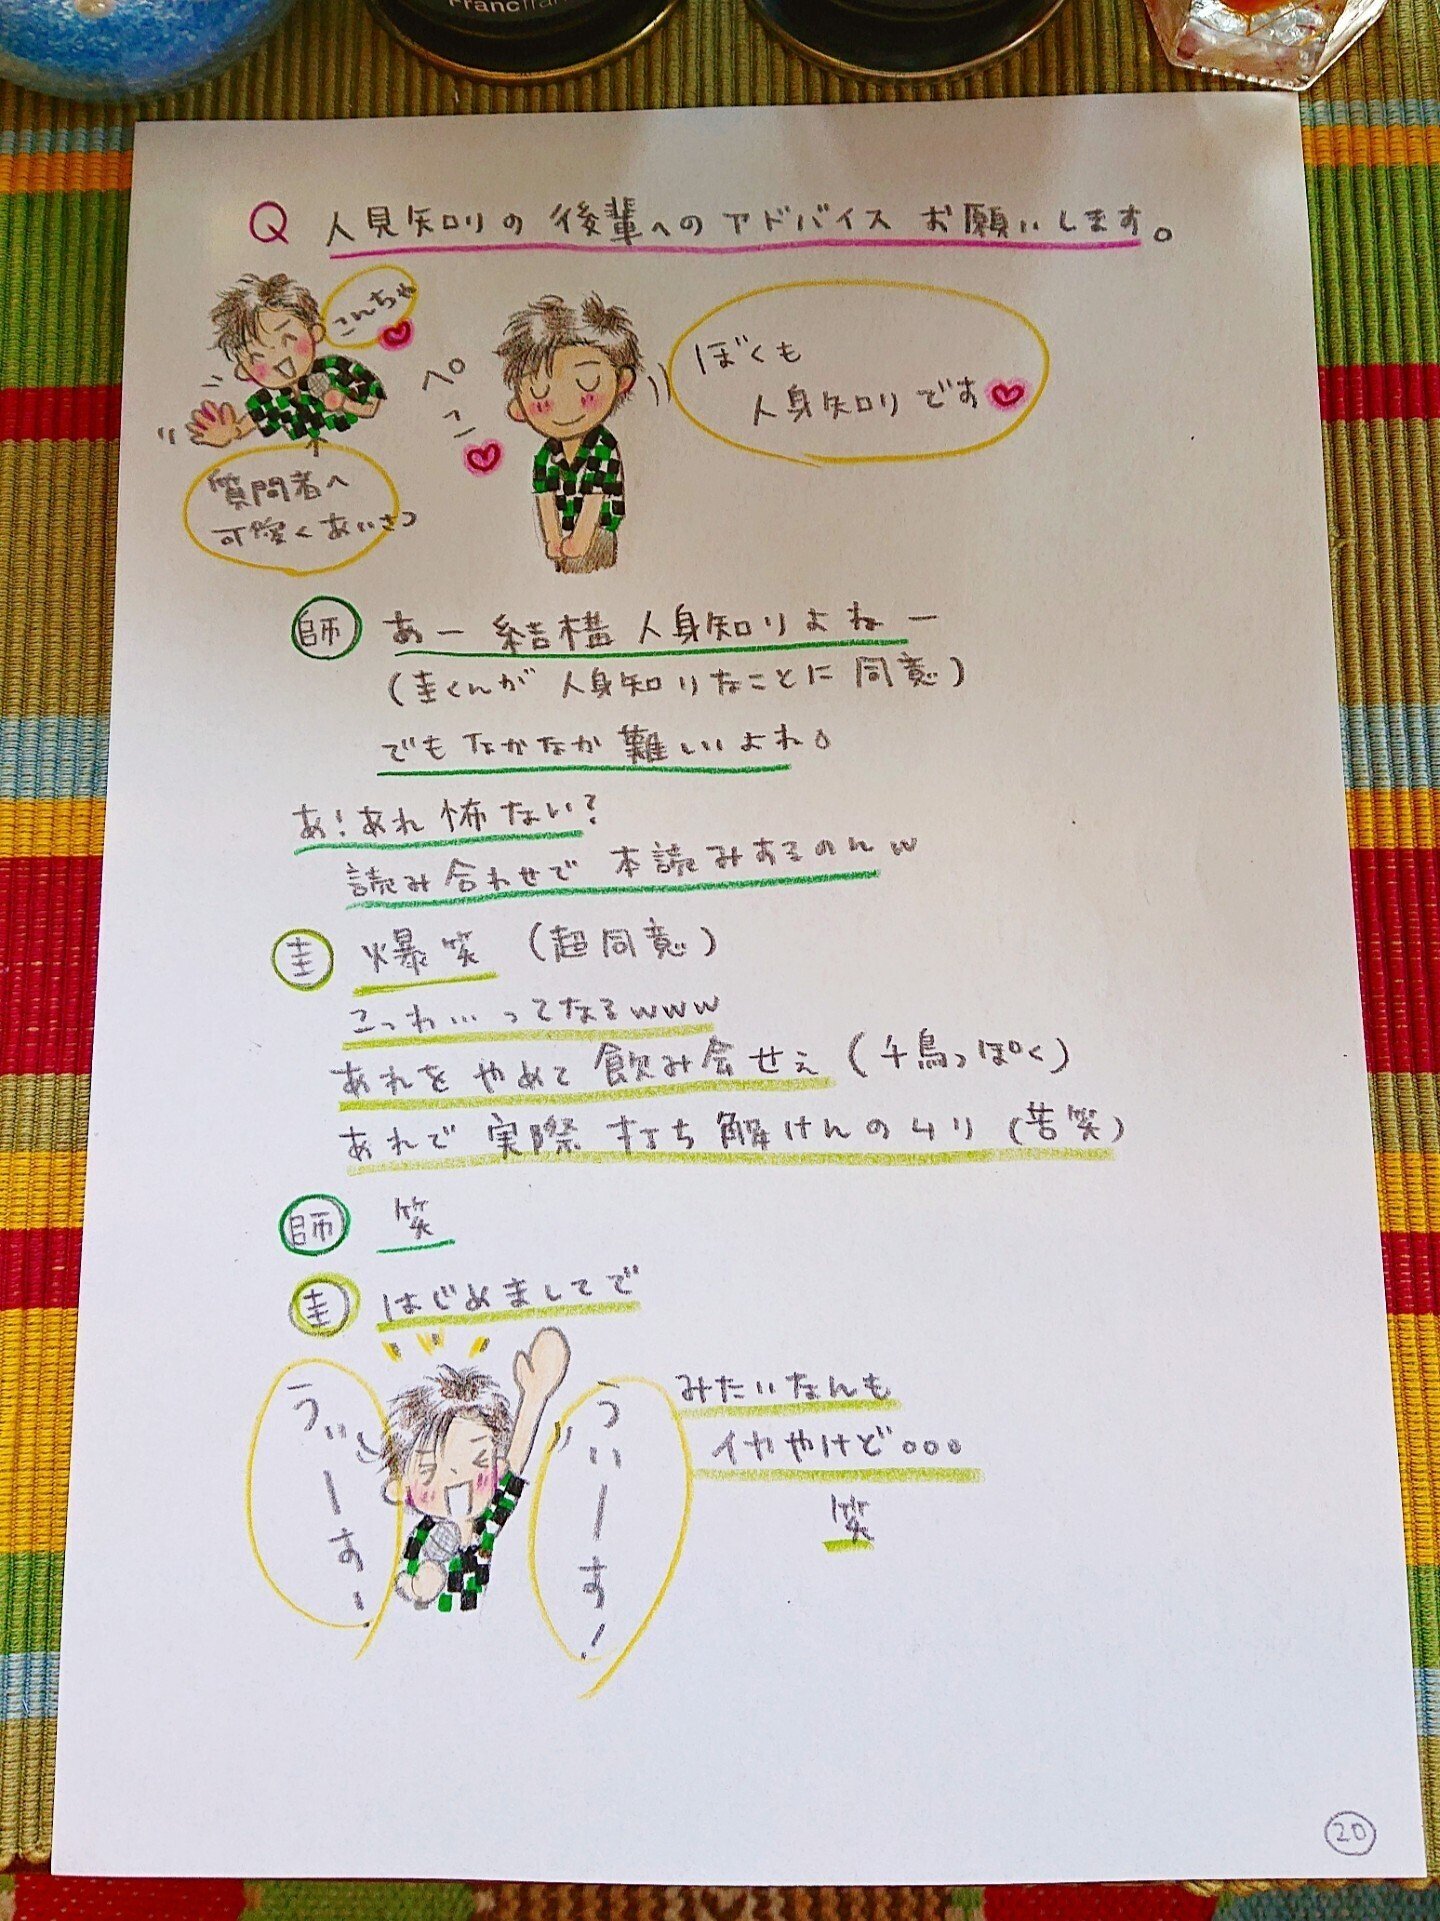 Francfranc
Q 人見知りの後輩へのアドバイスお願いします。
こんちゃ
ぺこ
ぼくも
人身知りです
質問者へ
可愛くあいさつ
師 あー結構人身知りよねー
(圭くんが人身知りなことに同意)
でもなかなか難しいよね。
あ!あれ怖ない?
読み合わせで本読みするのんw
圭 爆笑(超同意)
こっわ…ってなるwww
あれをやめて飲み会せぇ(千鳥っぽく)
あれで実際打ち解けんのムリ(苦笑)
師 笑
圭 はじめましてで
うぃーす!
うぃーす!
みたいなんも
イヤやけど。。。
笑
20